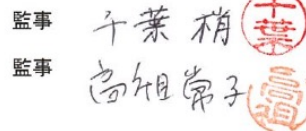 監事 千葉 梢 千葉
監事 高祖 常子